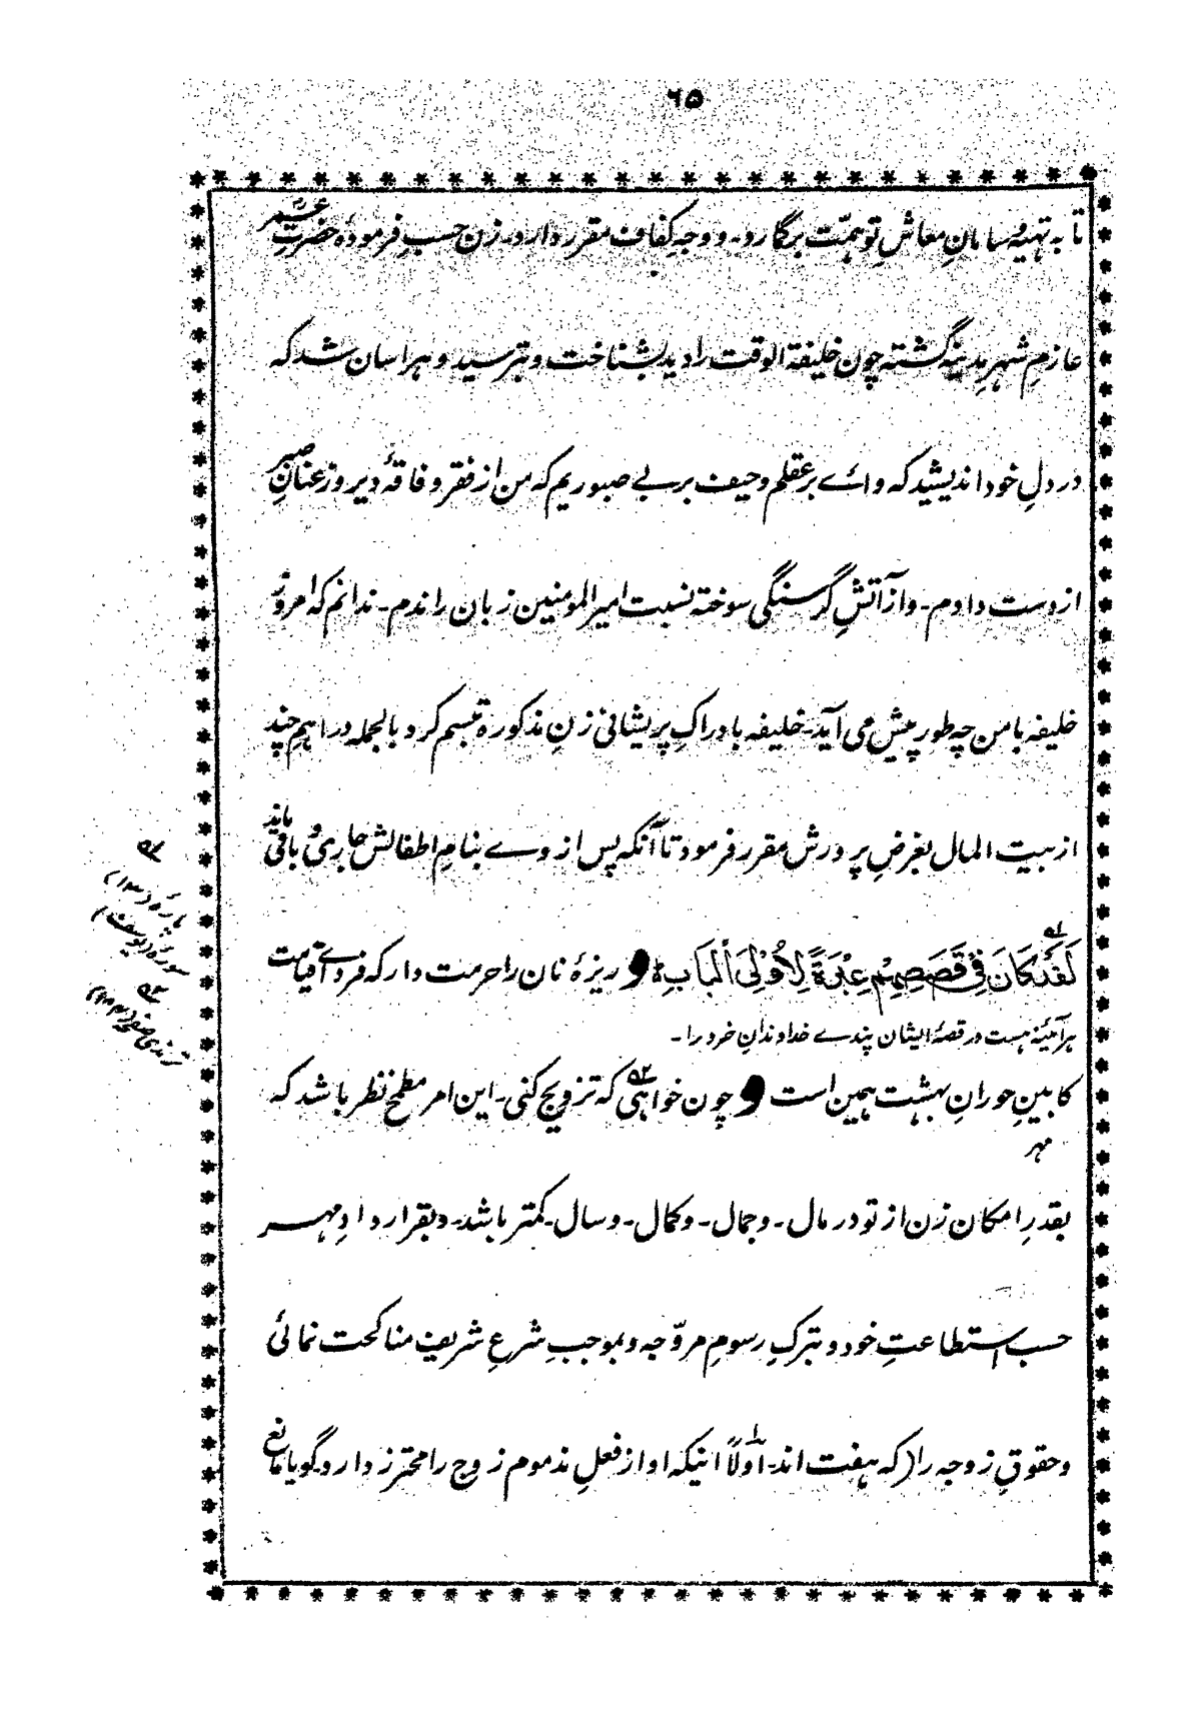 ٦٥
تا به تهیهٔ سامانِ معاشِ تو همّت برگارد۔ ووجہِ کفاف مقرر دارد۔ زن حسبِ فرمودهٔ حضرتِ عمرؓ
عازمِ شهرِ مدینه گشته چون خلیفة الوقت را دید بشناخت و بترسید و هراسان شد که
در دلِ خود اندیشید که وائے بر عقلم و حیف بر بے صبوریم که من از فقر و فاقهٔ دیروز عنانِ صبر
از دست دادم۔ و از آتشِ گرسنگی سوخته نسبت امیر المومنین زبان راندم۔ ندانم که امروز
خلیفه با من چه طور پیش می آید۔ خلیفه بادراکِ پریشانی زنِ مذکوره تبسم کرد بالجمله دراهمِ چند
از بیت المال بغرضِ پرورش مقرر فرمود تا آنکه پس از وے بنامِ اطفالش جاری و باقی ماند
لَقَدْ كَانَ فِي قَصَصِهِمْ عِبْرَةً لِأُولِی الْبَابِ ه و ریزهٔ نان را حرمت دار که فردائے قیامت
هر آئینه هست در قصهٔ ایشان پندے خداوندانِ خرد را۔
کابینِ حورانِ بهشت همین است و چون خواهی که تزویج کنی۔ این امر مطمح نظر باشد که
مهر
بقدرِ امکان زن از تو در مال۔ و جمال۔ و کمال۔ و سال۔ کمتر باشد۔ و بقرار دادِ مهر
حسب استطاعتِ خود و بترکِ رسومِ مروّجه و بموجبِ شرعِ شریف مناکحت نمائی
و حقوقِ زوجه را (که هفت اند۔ اوّلاً اینکه او از فعلِ مذموم زوج را محترز دارد گویا مانع
پارهٔ (۱۳)
سورهٔ (یوسف)
ترمذی صفحه